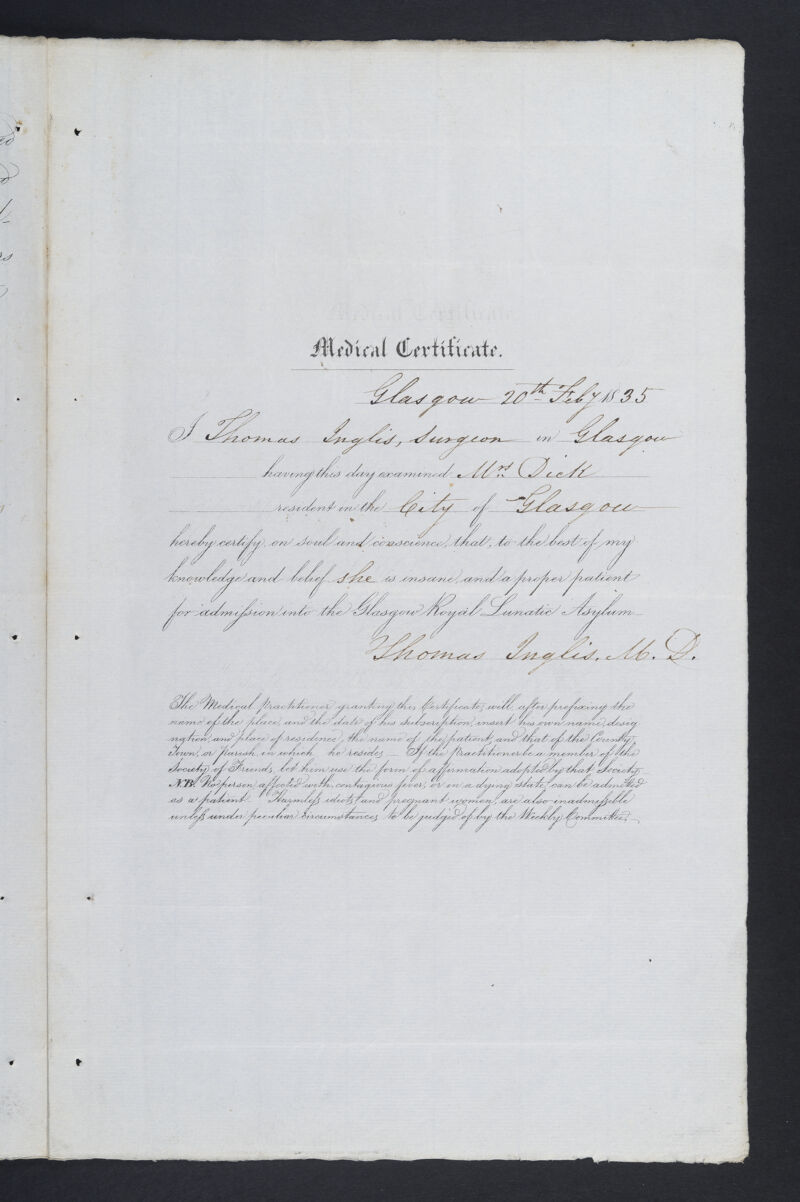 Medical Certificate.
Glasgow 20th Feby 1835
I Thomas Inglis, Surgeon in Glasgow
having this day examined Mrs Dick
resident in the City of Glasgow
hereby certify, on soul and conscience, that, to the best of my
knowledge and belief she is insane and a proper patient
for admission into the Glasgow Royal Lunatic Asylum
Thomas Inglis. M. D.
The Medical Practitioner granting this Certificate, will after prefixing the
name of the place, and the date of his subscription, insert his own name, desig
nation, and place of residence, the name of the patient, and that of the County,
Town, or Parish in which he resides_ If the Practitioner be a member of the
Society of Friends, let him use the form of affirmation adopted by that Society
N.B. No person affected with contagious fever, or in a dying state, can be admitted
as a patient. Harmless idiots and pregnant women, are also inadmissible
unless under peculiar circumstances, to be judged of by the Weekly Committee._